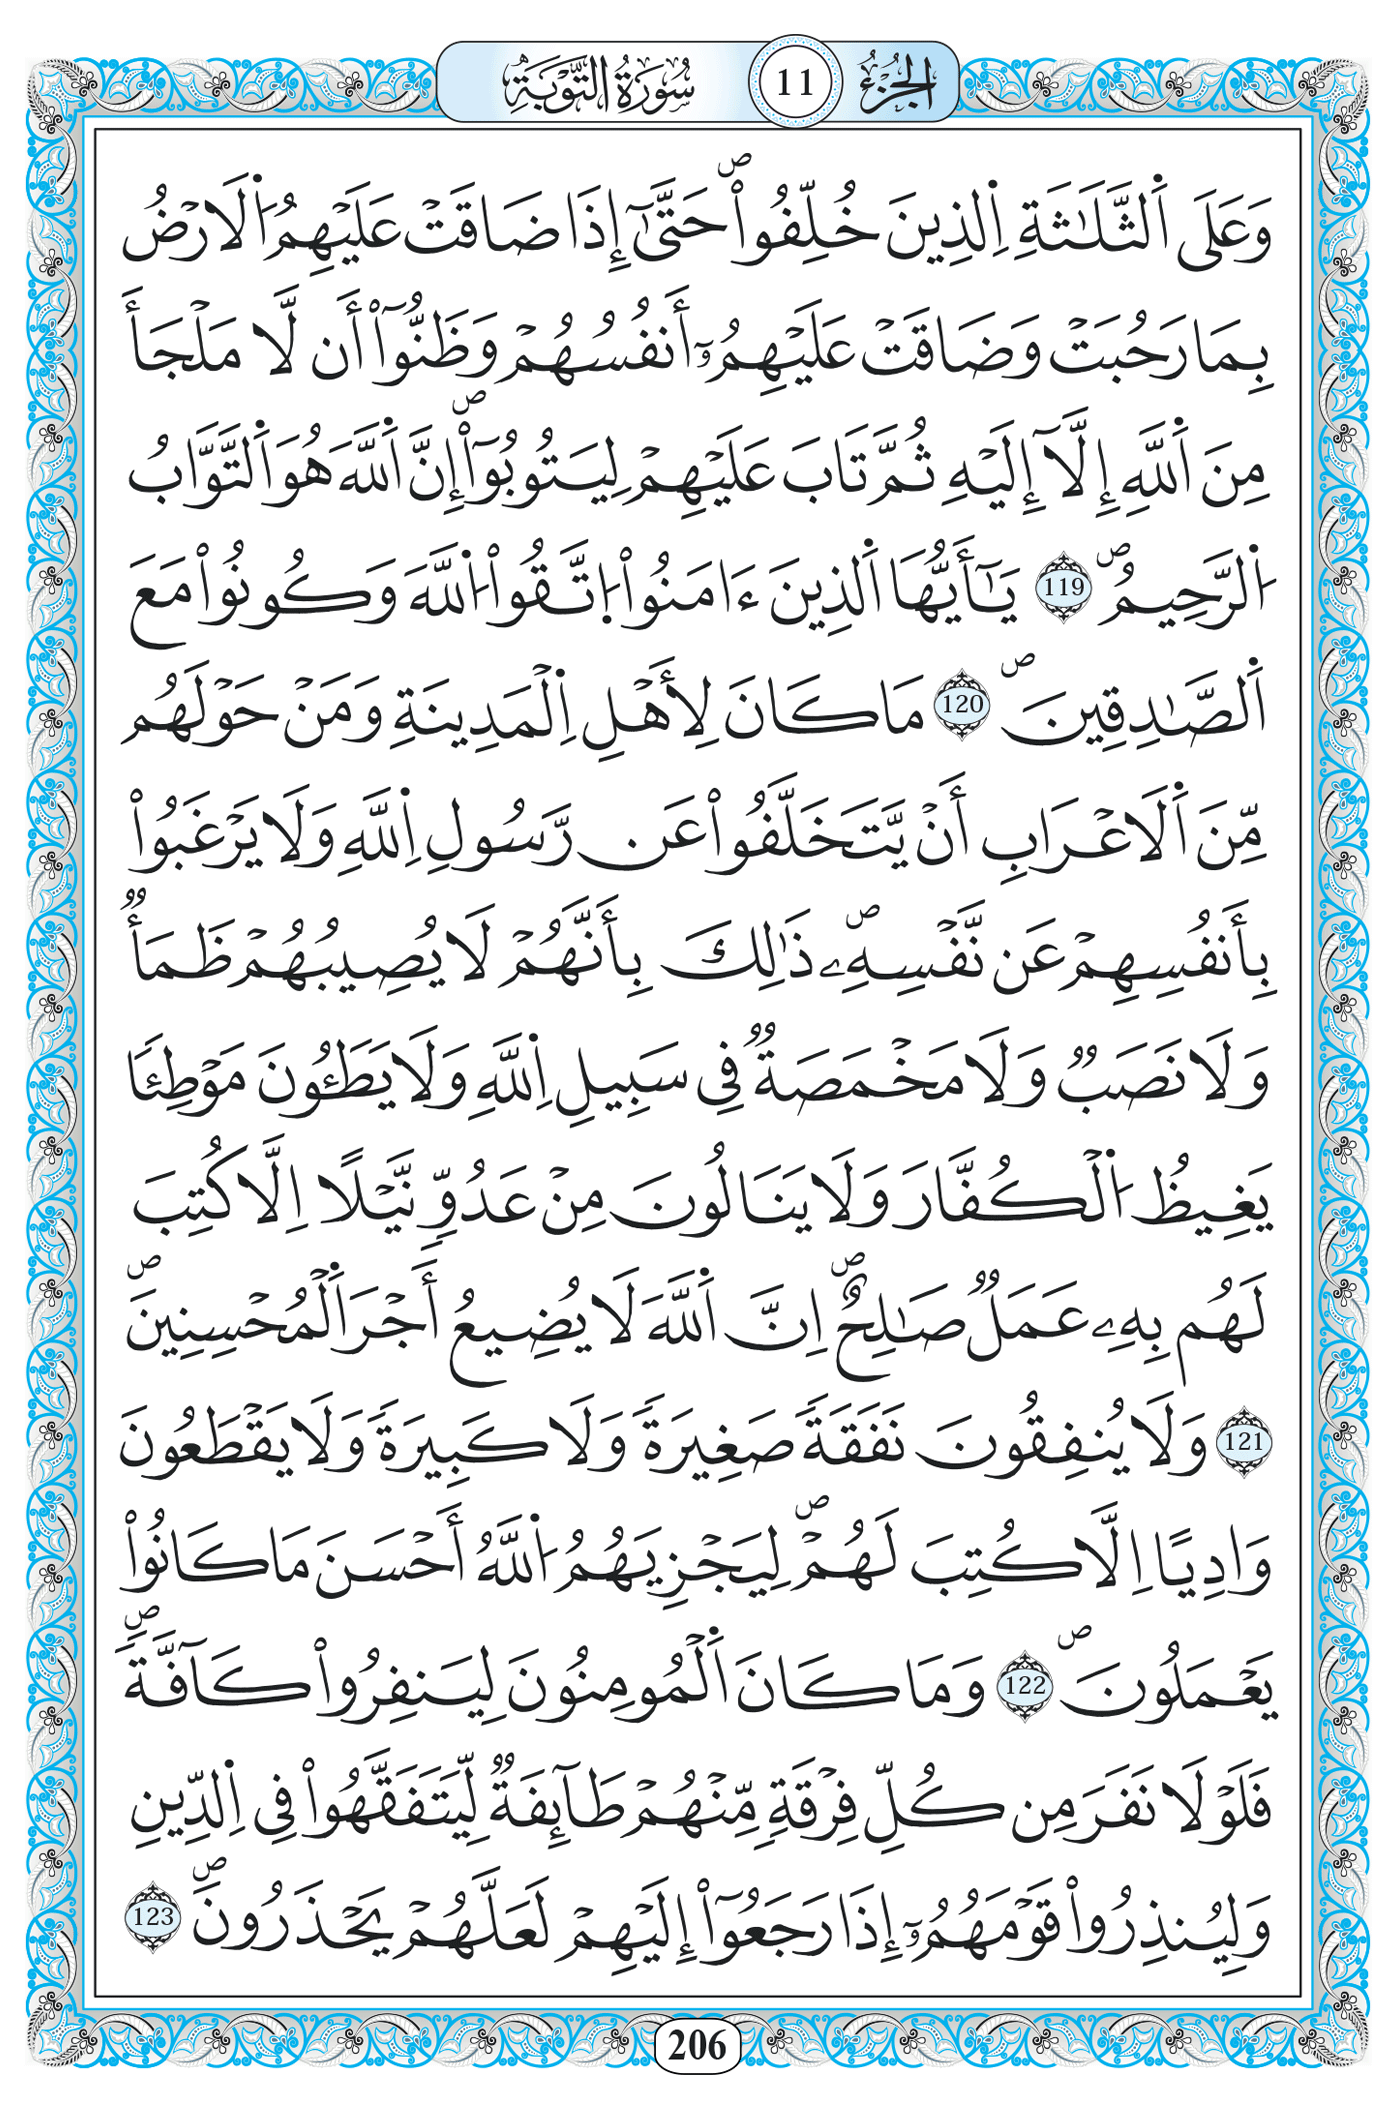 الجزء 11 سورة التوبة
وَعَلَى اَ۬لثَّلَٰثَةِ اِ۬لذِينَ خُلِّفُواْۖ حَتَّىٰٓ إِذَا ضَاقَتْ عَلَيْهِمُ اُ۬لَارْضُ
بِمَا رَحُبَتْ وَضَاقَتْ عَلَيْهِمُۥٓ أَنفُسُهُمْ وَظَنُّوٓاْ أَن لَّا مَلْجَأَ
مِنَ اَ۬للَّهِ إِلَّآ إِلَيْهِ ثُمَّ تَابَ عَلَيْهِمْ لِيَتُوبُوٓاْۖ إِنَّ اَ۬للَّهَ هُوَ اَ۬لتَّوَّابُ
اُ۬لرَّحِيمُۖ 119 يَٰٓأَيُّهَا اَ۬لذِينَ ءَامَنُواْ اُ۪تَّقُواْ اُ۬للَّهَ وَكُونُواْ مَعَ
اَ۬لصَّٰدِقِينَۖ 120 مَا كَانَ لِأَهْلِ اِ۬لْمَدِينَةِ وَمَنْ حَوْلَهُم
مِّنَ اَ۬لَاعْرَابِ أَنْ يَّتَخَلَّفُواْ عَن رَّسُولِ اِ۬للَّهِ وَلَا يَرْغَبُواْ
بِأَنفُسِهِمْ عَن نَّفْسِهِۦۖ ذَٰلِكَ بِأَنَّهُمْ لَا يُصِيبُهُمْ ظَمَأٞ
وَلَا نَصَبٞ وَلَا مَخْمَصَةٞ فِي سَبِيلِ اِ۬للَّهِ وَلَا يَطَـُٔونَ مَوْطِئاٗ
يَغِيظُ اُ۬لْكُفَّارَ وَلَا يَنَالُونَ مِنْ عَدُوّٖ نَّيْلًا اِلَّا كُتِبَ
لَهُم بِهِۦ عَمَلٞ صَٰلِحٌۖ اِنَّ اَ۬للَّهَ لَا يُضِيعُ أَجْرَ اَ۬لْمُحْسِنِينَۖ
121 وَلَا يُنفِقُونَ نَفَقَةٗ صَغِيرَةٗ وَلَا كَبِيرَةٗ وَلَا يَقْطَعُونَ
وَادِيًا اِلَّا كُتِبَ لَهُمْۖ لِيَجْزِيَهُمُ اُ۬للَّهُ أَحْسَنَ مَا كَانُواْ
يَعْمَلُونَۖ 122 وَمَا كَانَ اَ۬لْمُومِنُونَ لِيَنفِرُواْ كَآفَّةٗۖ
فَلَوْلَا نَفَرَ مِن كُلِّ فِرْقَةٖ مِّنْهُمْ طَآئِفَةٞ لِّيَتَفَقَّهُواْ فِي اِ۬لدِّينِ
وَلِيُنذِرُواْ قَوْمَهُمُۥٓ إِذَا رَجَعُوٓاْ إِلَيْهِمْ لَعَلَّهُمْ يَحْذَرُونَۖ 123
206